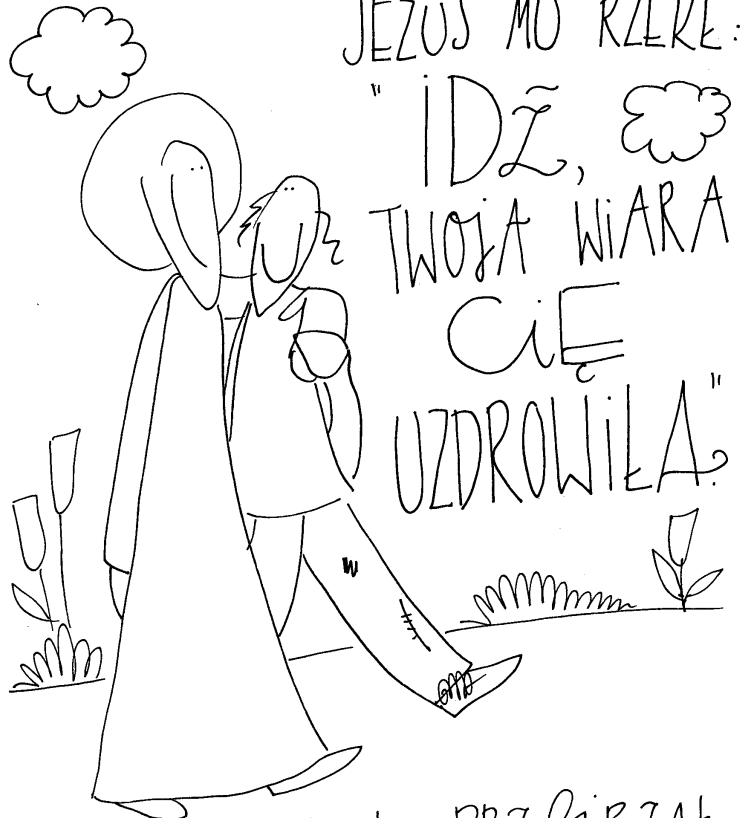 JEZUS MU RZEKŁ:
"IDŹ,
TWOJA WIARA
CIĘ
UZDROWIŁA."